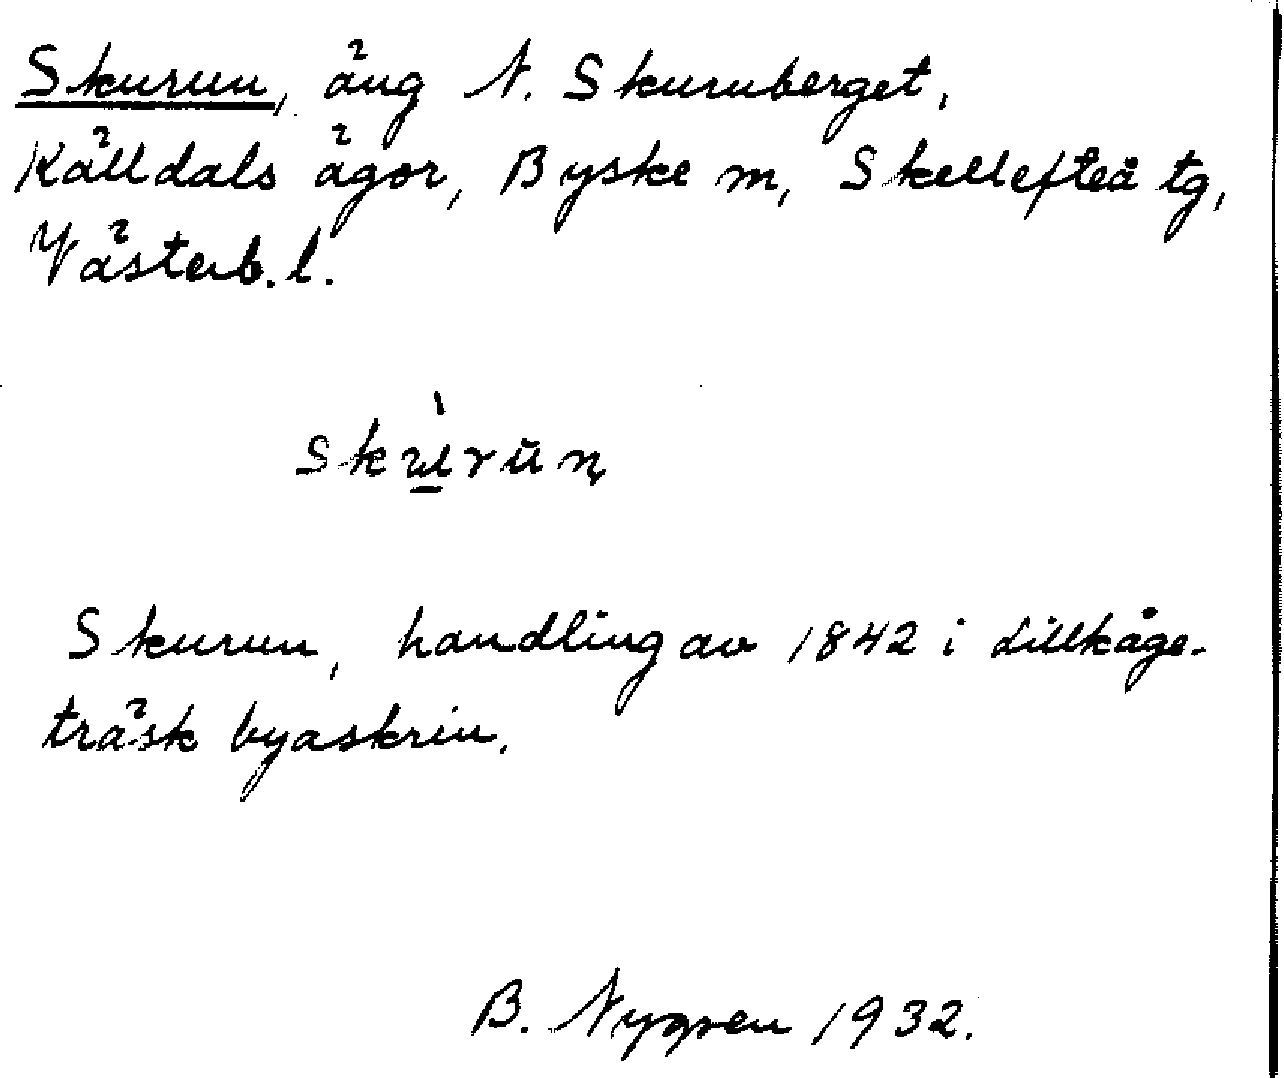 Skurun, äng N. Skuruberget,
Källdals ägor, Byske sn, Skellefteå tg,
Västerb. l.
skùrun
Skurun, handling av 1842 i Lillkåge-
träsk byaskrin.
B. Nygren 1932.